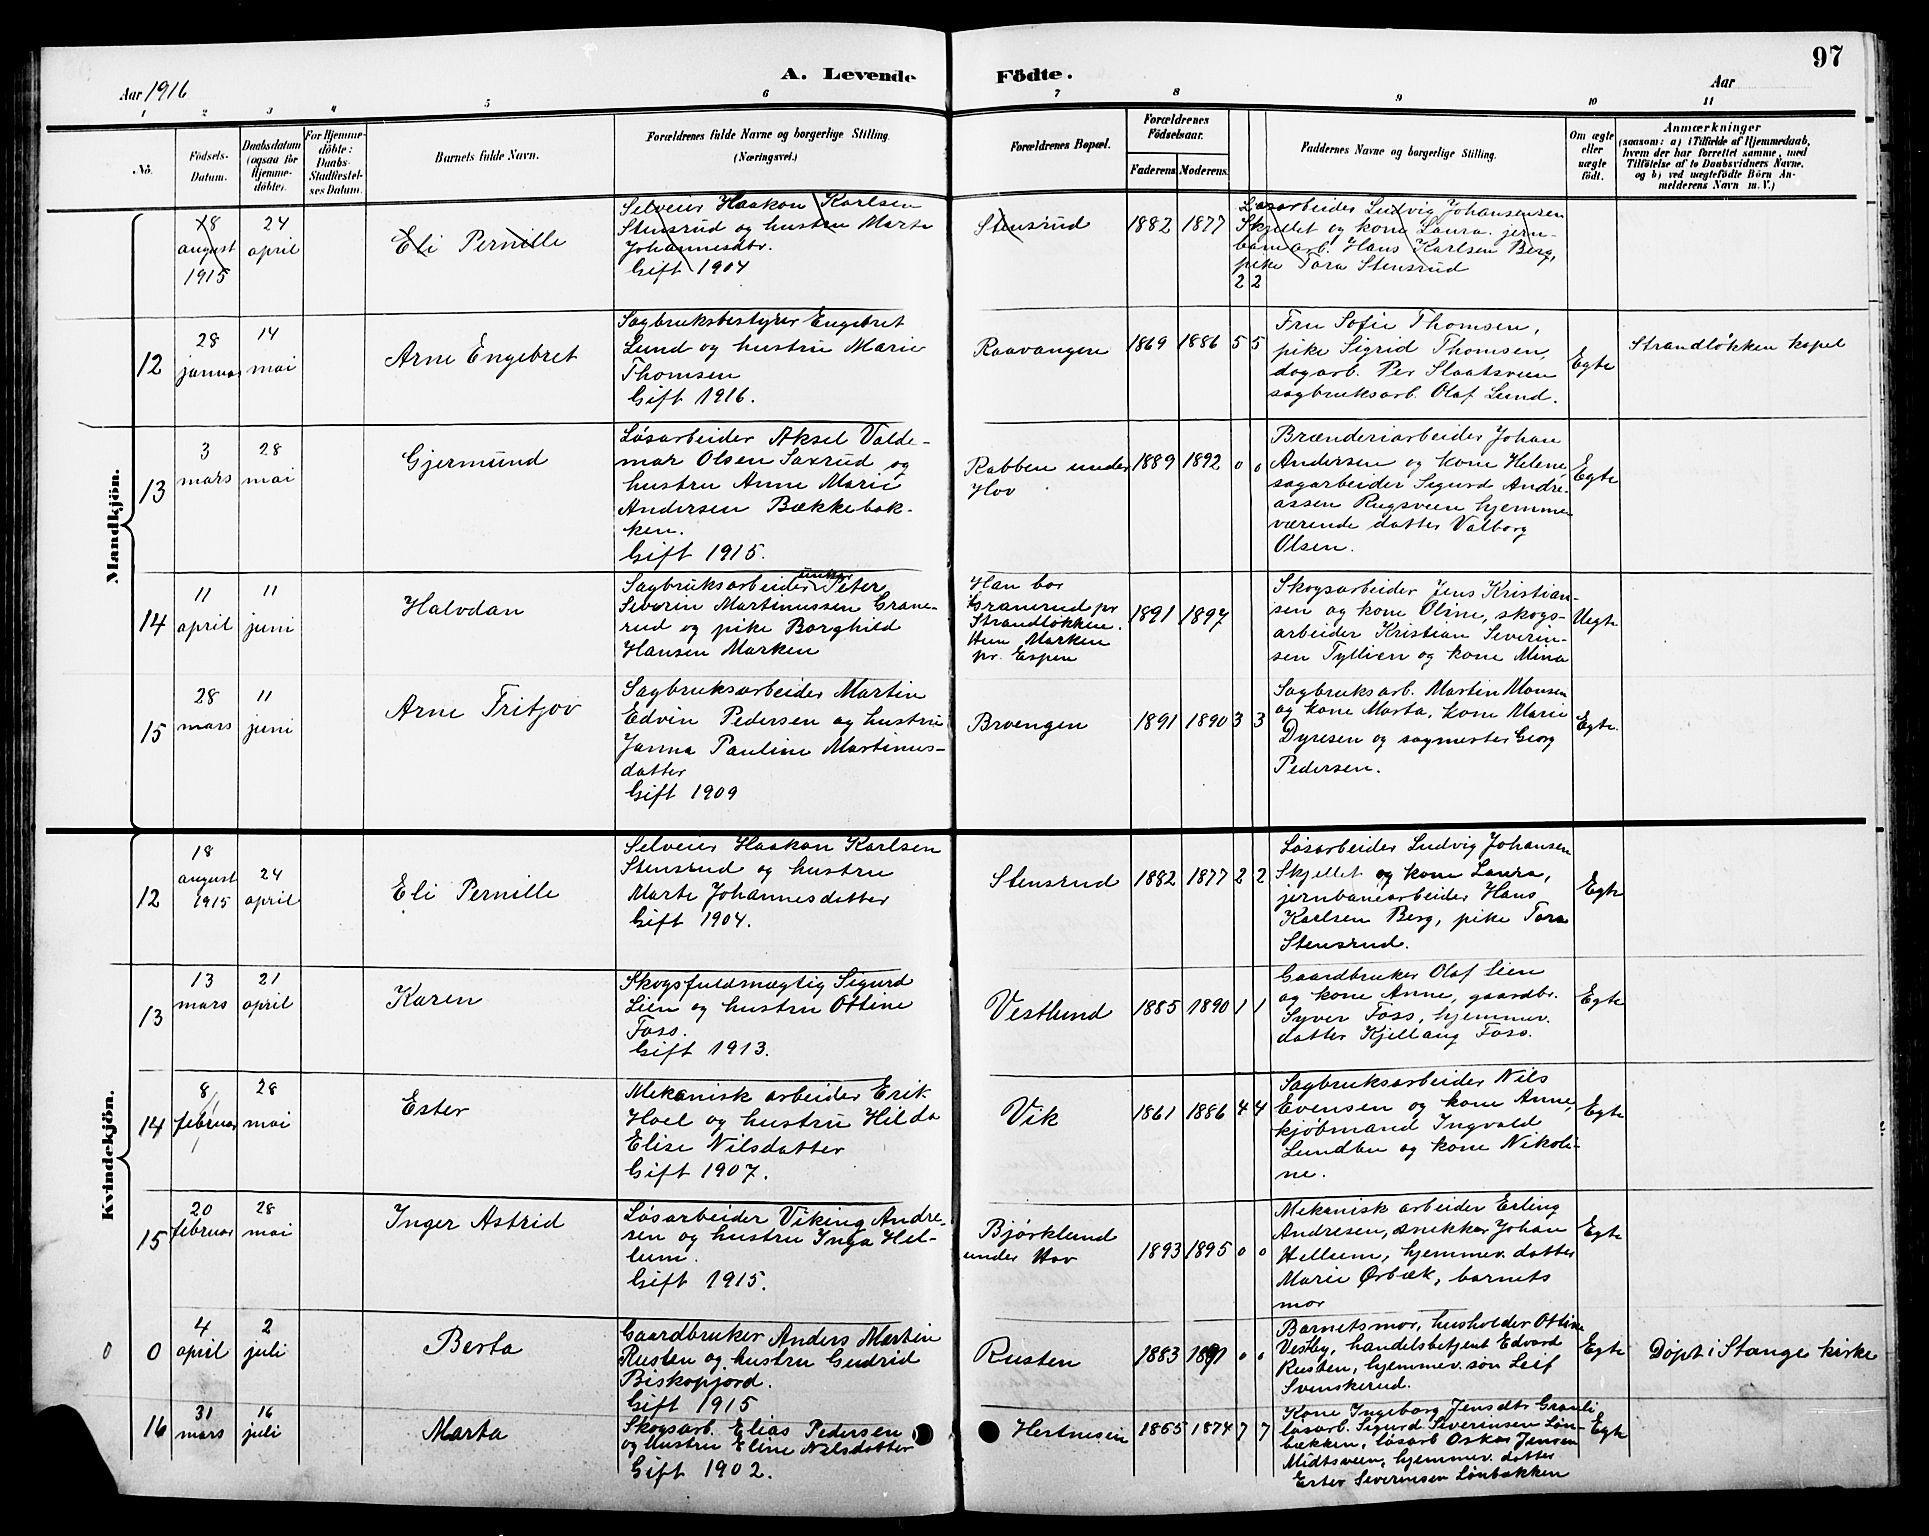 97
Aar 1916
A. Levende
Födte.
Aar
1 2 3 4 5 6 7 8 9 10 11
No.
Födsels-
Datum.
Daabsdatum
(ogsaa for
Hjemme-
döbte).
For Hjemme-
döbte:
Daabs-
Stadfæstel-
ses Datum.
Barnets fulde Navn.
Forældrenes fulde Navne og borgerlige Stilling.
(Næringsvei.)
Forældrenes Bopæl.
Forældrenes
Födselsaar.
Faderens. Moderens.
Faddernes Navne og borgerlige Stilling.
Om ægte
eller
uægte
födt.
Anmærkninger
(saasom: a) i Tilfælde af Hjemmedaab,
hvem der har forrettet samme, med
Tilföielse af to Daabsvidners Navne.
og b) ved uægtefödte Börn An-
melderens Navn m. V.)
Mandkjön.
18
august
1915
24
april
Eli Pernille
Selveier Haakon Karlsen
Stensrud og hustru Marte
Johannesdtr.
Gift 1904
Stensrud
1882 1877
2 2
Løsarbeider Ludvig Johansen
Skjellet og kone Laura. jern-
banearb. Hans Karlsen Berg,
pike Tora Stensrud
12
28
januar
14
mai
Arne Engebret
Sagbruksbestyrer Engebret
Lund og hustru Marie
Thomsen
Gift 1916.
Raavangen
1869 1886 5 5
Fru Sofie Thomsen,
pike Sigrid Thomsen,
dagarb. Per Slaatsveen
sagbruksarb. Olaf Lund.
Egte
Strandløkken kapel
13
3
mars
28
mai
Gjermund
Løsarbeider Aksel Valde-
mar Olsen Saxrud og
hustru Anne Marie
Andersen Bækkebak-
ken.
Gift 1915.
Rabben under
Hov
1889 1892 0 0
Brænderiarbeider Johan
Andersen og kone Helene,
sagarbeider Sigurd Andre-
assen Rugsveen hjemme
værende datter Valborg
Olsen.
Egte
14
11
april
11
juni
Halvdan
Sagbruksarbeider ungkar Peter
Severin Martinussen Grane-
rud og pike Borghild
Hansen Marken
Han bor
Granerud pr
Strandløkken.
Hun Marken
pr. Espen
1891 1897
Skogsarbeider Jens Kristian-
sen og kone Oline, skogs-
arbeider Kristian Severin-
sen Tyllien og kone Mina
Uegte
15
28
mars
11
juni
Arne Fritjov
Sagbruksarbeider Martin
Edvin Pedersen og hustru
Janna Pauline Martinus-
datter
Gift 1909
Brvengen
1891 1890 3 3
Sagbruksarb. Martin Monsen
og kone Marta, kone Marie
Dyresen og sagmester Georg
Pedersen.
Egte.
Kvindekjön.
12
18
august
1915
24
april
Eli Pernille
Selveier Haakon Karlsen
Stensrud og hustru
Marte Johannesdatter
Gift 1904.
Stensrud
1882 1877 2 2
Løsarbeider Ludvig Johansen
Skjellet og kone Laura,
jernbanearbeider Hans
Karlsen Berg, pike Tora
Stensrud.
Egte
13
13
mars
21
april
Karen
Skogsfuldmægtig Sigurd
Lien og hustru Ottine
Foss.
Gift 1913.
Vestlund
1885 1890 1 1
Gaardbruker Olaf Lien
og kone Anne, gaardbr.
Syver Foss, hjemmev.
datter Kjellaug Foss.
Egte
14
8
februar
28
mai
Ester
Mekanisk arbeider Erik
Hoel og hustru Hilda
Elise Nilsdatter
Gift 1907.
Vik
1861 1886 4 4
Sagbruksarbeider Nils
Evensen og kone Anne,
kjøbmand Ingvald
Lundbu og kone Nikoli-
ne.
Egte
15
20
februar
28
mai
Inger Astrid
Løsarbeider Viking Andre-
sen og hustru Inga Hel-
lum.
Gift 1915.
Bjørklund
under Hov
1893 1895 0 0
Mekanisk arbeider Erling
Andresen, snekker Johan
Hellum, hjemmev. datter
Marie Ørbæk, barnets
mor
Egte
0 0
4
april
2
juli
Berta
Gaardbruker Anders Martin
Rusten og hustru Gudrid
Biskopjord.
Gift 1915
Rusten
1883 1891 0 0
Barnets mor, husholder Ottine
Vesby, handelsbetjent Edvard
Rusten, hjemmev. søn Leif
Svenskerud.
Egte
Døpt i Stange kirke
16
31
mars
16
juli
Marta
Skogsarb. Elias Pedersen
og hustru Eline Nilsdatter
Gift 1902.
Hestnesen
1865 1874 7 7
Kone Ingeborg Jensdtr Granli
løsarb. Sigurd Severinsen Løn-
bækken, løsarb Oskar Jensen
Midtsveen, hjemmev. datter
Ester Severinsen Lønbækken
Egte